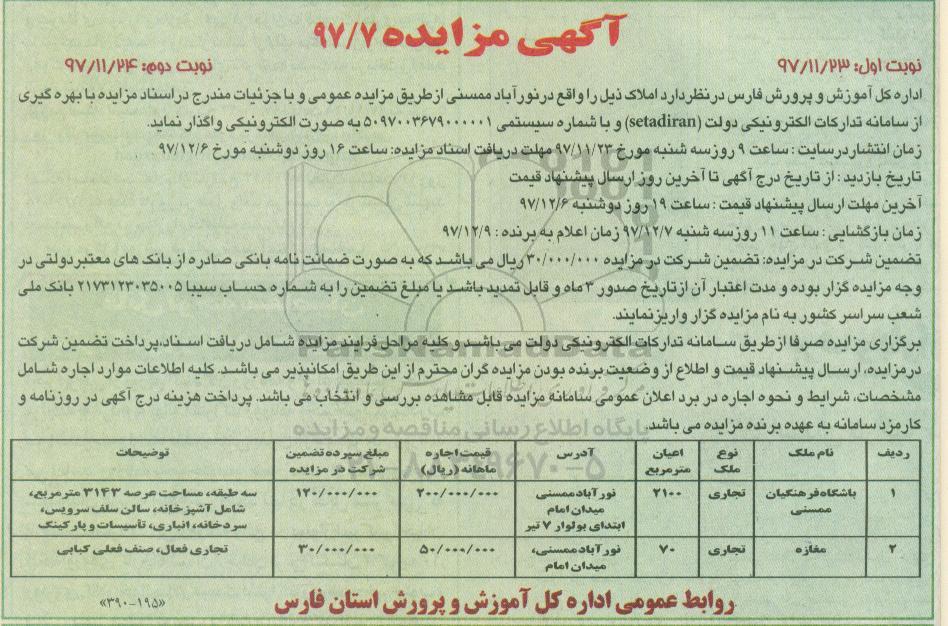 آگهی مزایده ۹۷/۷
نوبت اول: ۹۷/۱۱/۲۳
نوبت دوم: ۹۷/۱۱/۲۴
اداره کل آموزش و پرورش فارس در نظر دارد املاک ذیل را واقع در نورآباد ممسنی از طریق مزایده عمومی و با جزئیات مندرج در اسناد مزایده با بهره گیری
از سامانه تدارکات الکترونیکی دولت (setadiran) و با شماره سیستمی ۵۰۹۷۰۰۳۶۷۹۰۰۰۰۰۱ به صورت الکترونیکی واگذار نماید.
زمان انتشار در سایت : ساعت ۹ روز سه شنبه مورخ ۹۷/۱۱/۲۳ مهلت دریافت اسناد مزایده: ساعت ۱۶ روز دوشنبه مورخ ۹۷/۱۲/۶
تاریخ بازدید : از تاریخ درج آگهی تا آخرین روز ارسال پیشنهاد قیمت
آخرین مهلت ارسال پیشنهاد قیمت : ساعت ۱۹ روز دوشنبه ۹۷/۱۲/۶
زمان بازگشایی : ساعت ۱۱ روز سه شنبه ۹۷/۱۲/۷ زمان اعلام به برنده : ۹۷/۱۲/۹
تضمین شرکت در مزایده: تضمین شرکت در مزایده ۳۰/۰۰۰/۰۰۰ ریال می باشد که به صورت ضمانت نامه بانکی صادره از بانک های معتبر دولتی در
وجه مزایده گزار بوده و مدت اعتبار آن از تاریخ صدور ۳ ماه و قابل تمدید باشد یا مبلغ تضمین را به شماره حساب سیبا ۲۱۷۳۱۲۳۰۳۵۰۰۵ بانک ملی
شعب سراسر کشور به نام مزایده گزار واریز نمایند.
برگزاری مزایده صرفا از طریق سامانه تدارکات الکترونیکی دولت می باشد و کلیه مراحل فرایند مزایده شامل دریافت اسناد، پرداخت تضمین شرکت
در مزایده، ارسال پیشنهاد قیمت و اطلاع از وضعیت برنده بودن مزایده گران محترم از این طریق امکانپذیر می باشد. کلیه اطلاعات موارد اجاره شامل
مشخصات، شرایط و نحوه اجاره در برد اعلان عمومی سامانه مزایده قابل مشاهده بررسی و انتخاب می باشد. پرداخت هزینه درج آگهی در روزنامه و
کارمزد سامانه به عهده برنده مزایده می باشد.
ParsNamadData
پایگاه اطلاع رسانی مناقصه و مزایده
۰۲۱-۸۸۳۴۹۶۷۰-۵
ردیف نام ملک نوع ملک اعیان مترمربع آدرس قیمت اجاره ماهانه (ریال) مبلغ سپرده تضمین شرکت در مزایده توضیحات
۱ باشگاه فرهنگیان ممسنی تجاری ۲۱۰۰ نورآباد ممسنی میدان امام ابتدای بولوار ۷ تیر ۲۰۰/۰۰۰/۰۰۰ ۱۲۰/۰۰۰/۰۰۰ سه طبقه، مساحت عرصه ۳۱۴۳ مترمربع، شامل آشپزخانه، سالن سلف سرویس، سردخانه، انباری، تأسیسات و پارکینگ
۲ مغازه تجاری ۷۰ نورآباد ممسنی، میدان امام ۵۰/۰۰۰/۰۰۰ ۳۰/۰۰۰/۰۰۰ تجاری فعال، صنف فعلی کبابی
روابط عمومی اداره کل آموزش و پرورش استان فارس
«۳۹۰-۱۹۵»